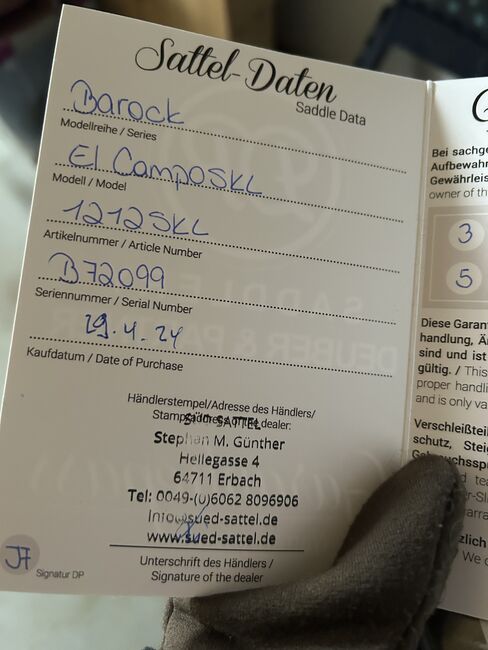 Sattel-Daten
Saddle Data
Barock
Modellreihe / Series
El Campo SKL
Modell / Model
1212SKL
Artikelnummer / Article Number
B72099
Seriennummer / Serial Number
29.4.24
Kaufdatum / Date of Purchase
Händlerstempel/Adresse des Händlers/
Stamp/address of the dealer:
SATTEL
Stephan M. Günther
Hellegasse 4
64711 Erbach
Tel: 0049-(0)6062 8096906
info@sued-sattel.de
www.sued-sattel.de
Unterschrift des Händlers /
Signature of the dealer
JF
Signatur DP
SADDLE
DEUBER & PA
Bei sachge
Aufbewahr
Gewährleis
owner of th
3
5
Diese Garant
handlung, Än
sind und ist
gültig. / This
proper handli
and is only va
Verschleißteil
schutz, Steig